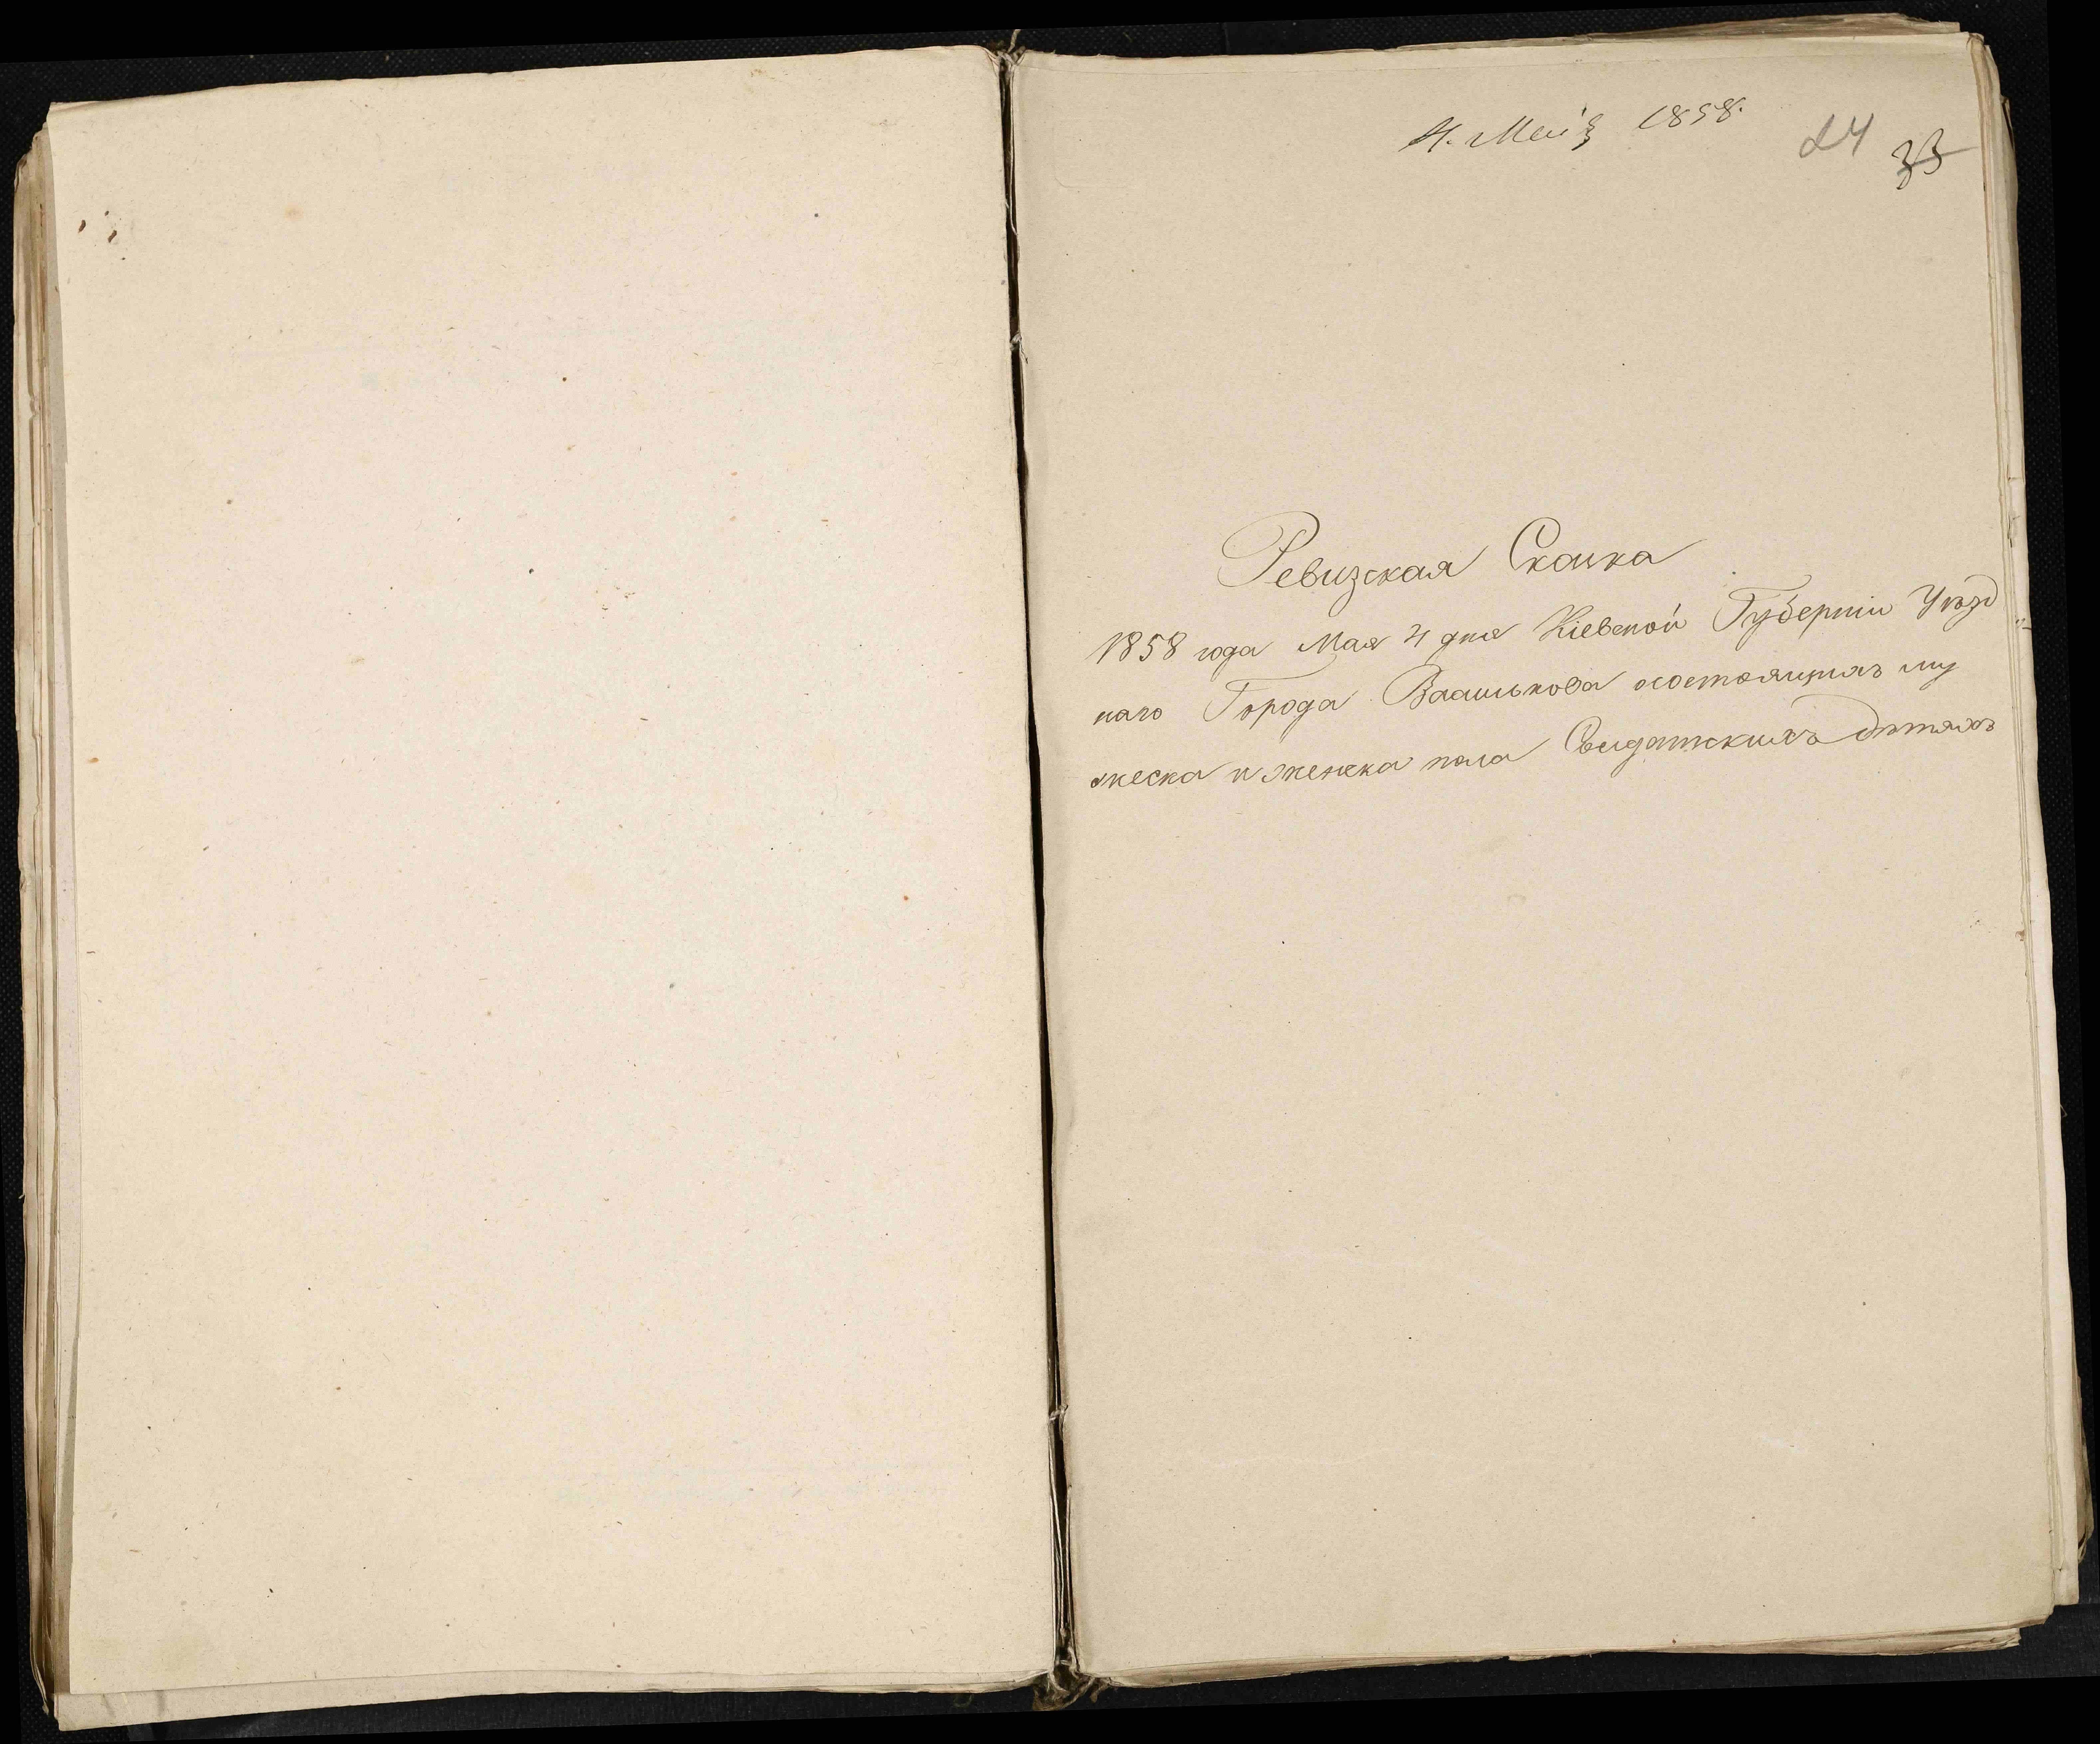 4. Маія 1858.
24
33
Ревизская Скаска
1858 года Мая 4 дня Кіевской Губерніи Уѣзд
наго Города Василькова осостоящихъ му
жеска и женска пола Солдатскихъ Дѣтяхъ